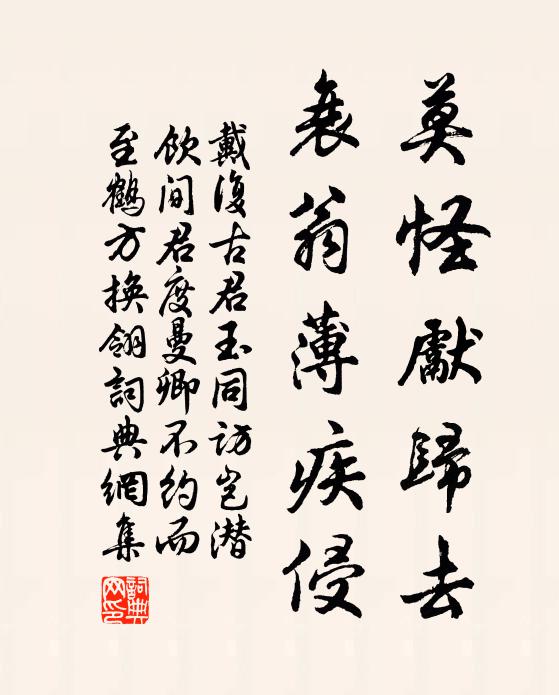 莫怪獻歸去
衰翁薄疾侵
戴復古君玉同訪豈潜
飲间君度曼卿不約而
至鶴方換翎詞典網集
詞典
网印